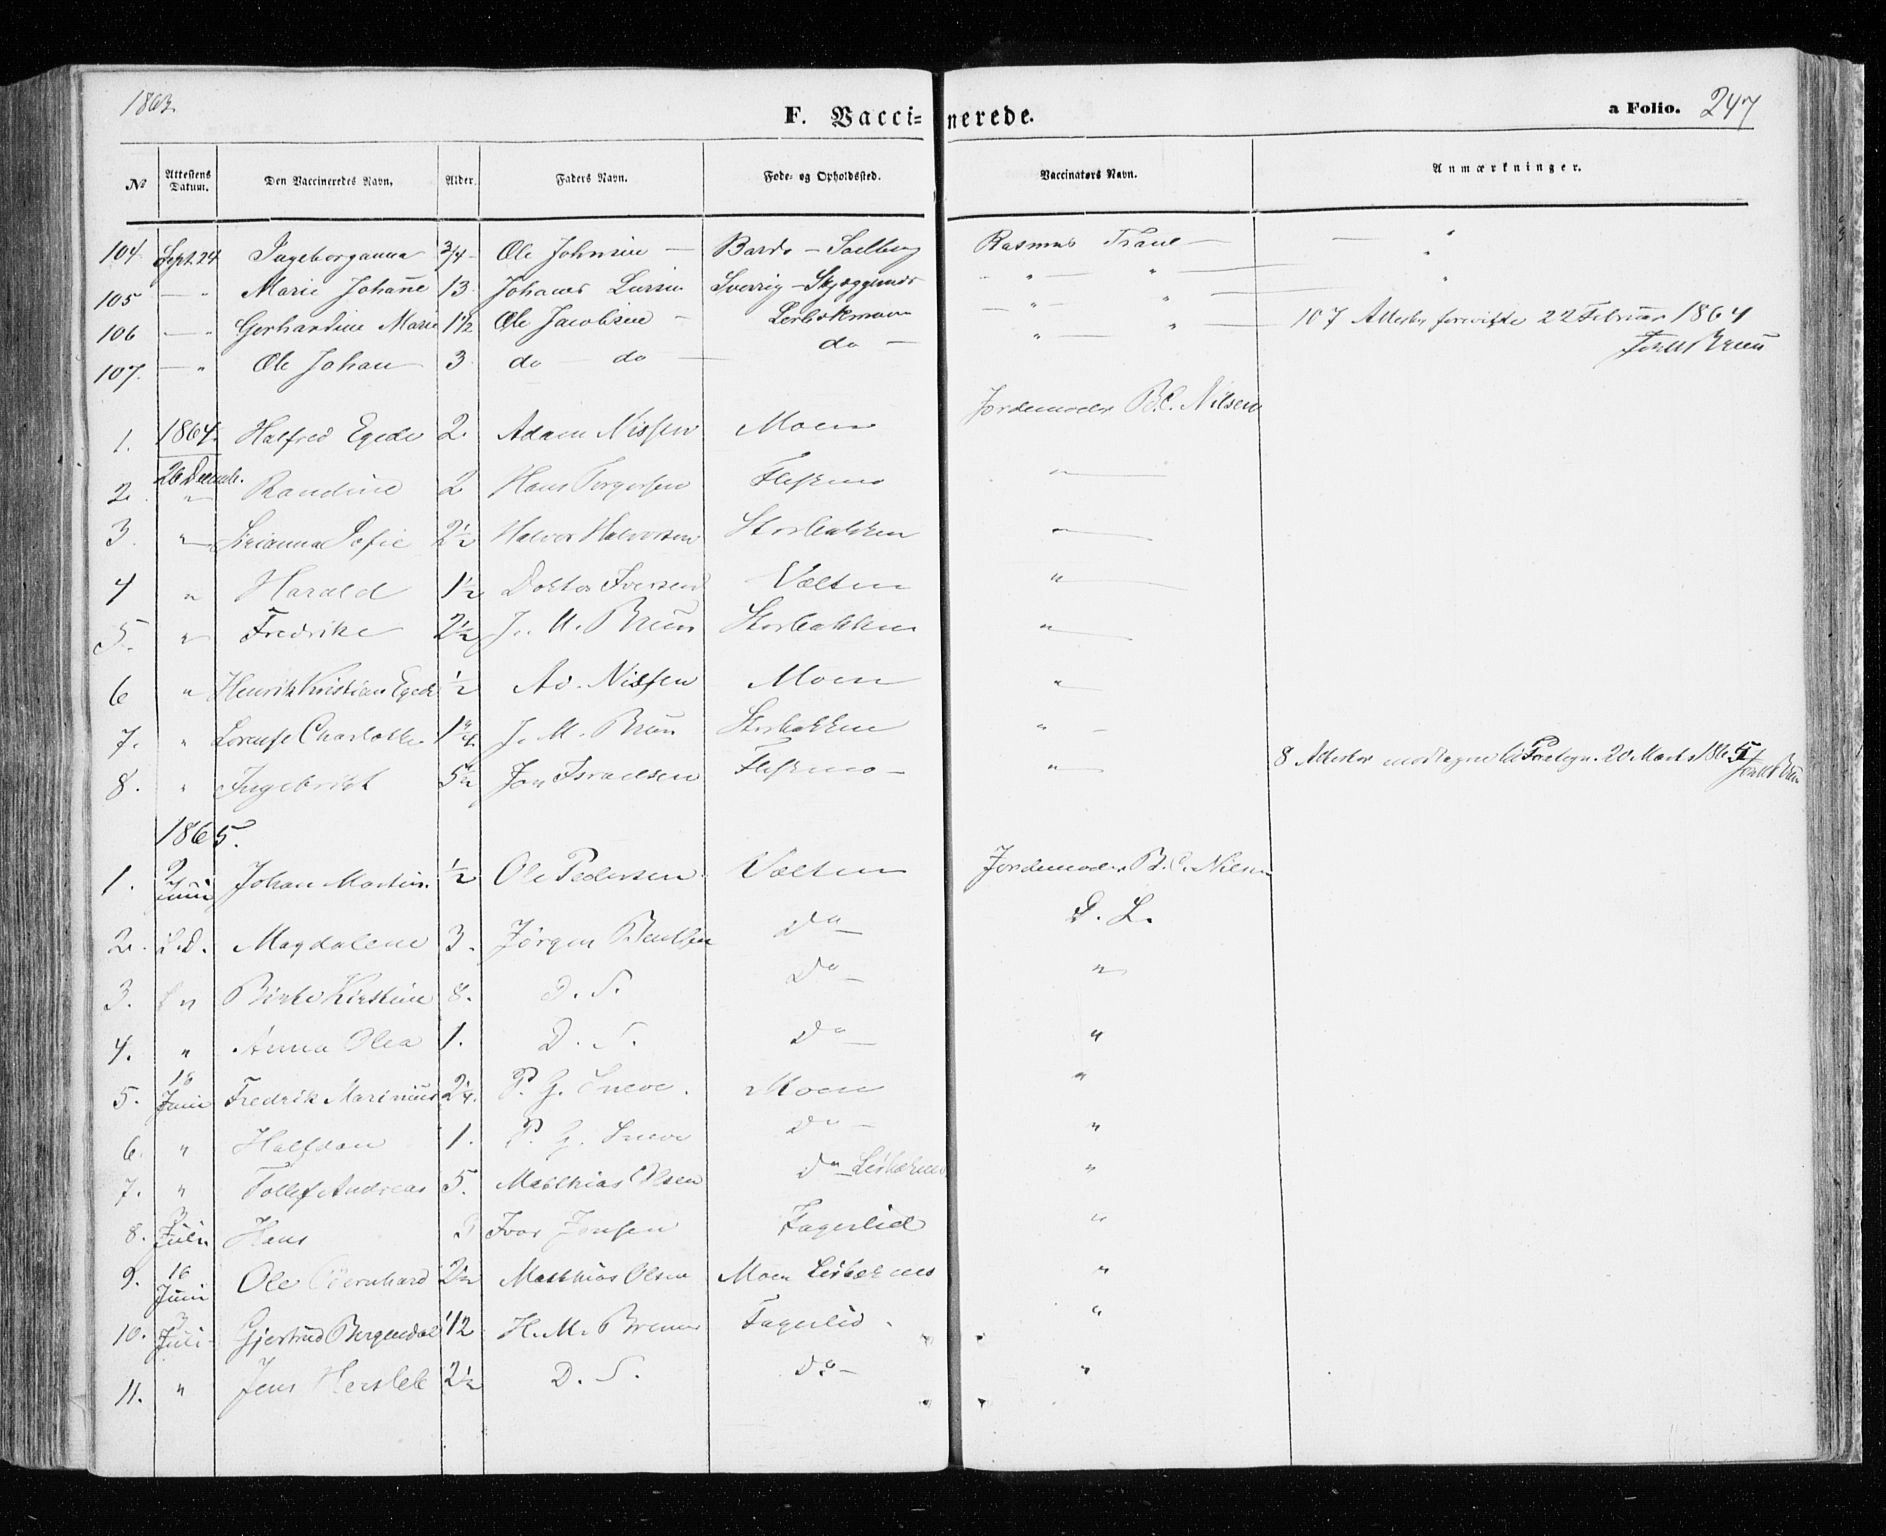 1863.
F. Vaccinerede.
a Folio. 247
No Attestens Datum. Den Vaccineredes Navn. Alder. Faders Navn. Føde- og Opholdssted. Vaccinatørs Navn. Anmærkninger.
104. Sept. 24 Ingeborganna 3/4 Ole Johnsen — Bardo — Rasmus —
105 — " Marie Johañe 13 Johanes Larsen Sverrig — " — "
106 — " Gerhardine Marie 1 1/2 Ole Jacobsen — — " — "
107. — " Ole Johan 3 do — do — do — — " — " 107 Attester foreviste 22 Februar 1864
1864.
1. Halfred Egede 2 Adam Nissen Moen Jordemoder B.C. Nilsen
26 Decemb.
2. " Randine 2 Hans Torgersen Fleskmo "
3. " Sofie 2 1/2 Halvor Halvorsen Storbakken "
4 " Harald 1 1/2 Doktor Iversen Vælten "
5. " Fredrike 2 1/2 J. M. Bruun Storbakken "
6 " Henrik Kristian Egede 1/2 Ad. Nissen Moen "
7. " Lorense Charlotte 1 J. M. Bruun Storbakken "
8. " Ingebrigt 5 1/2 Jon Israelsen Fleskmo — " 8 Attester modtagne 20 Marts 1865
1865.
1. 9 Juni Johan Martin. 1/2 Ole Pedersen Vælten Jordemoder B. C. Nilsen
2. S. D. Magdalene 3. Jørgen Bentsen Do — S. L.
3. " Kirstine 8. D. S. Do — "
4. " Anna Olea 1. D. S. Do — "
5. 16 Juni Fredrik Marinius 2 1/4. P. G. Sneve. Moen "
6. " Halfdan 1. P. G. Sneve Do — "
7. " Tollef Andreas 5. Matthias Olsen Do "
8. Juli Hans Ivar Jonsen Fagerlid "
9. 16 Juni Ole Bernhard 2 1/2 Matthias Olsen Moen "
10. Juli Gjertrud Bergendal 12 H. M. Fagerlid. "
11. " Jens Hersleb 2 1/2 D. S. Do — "